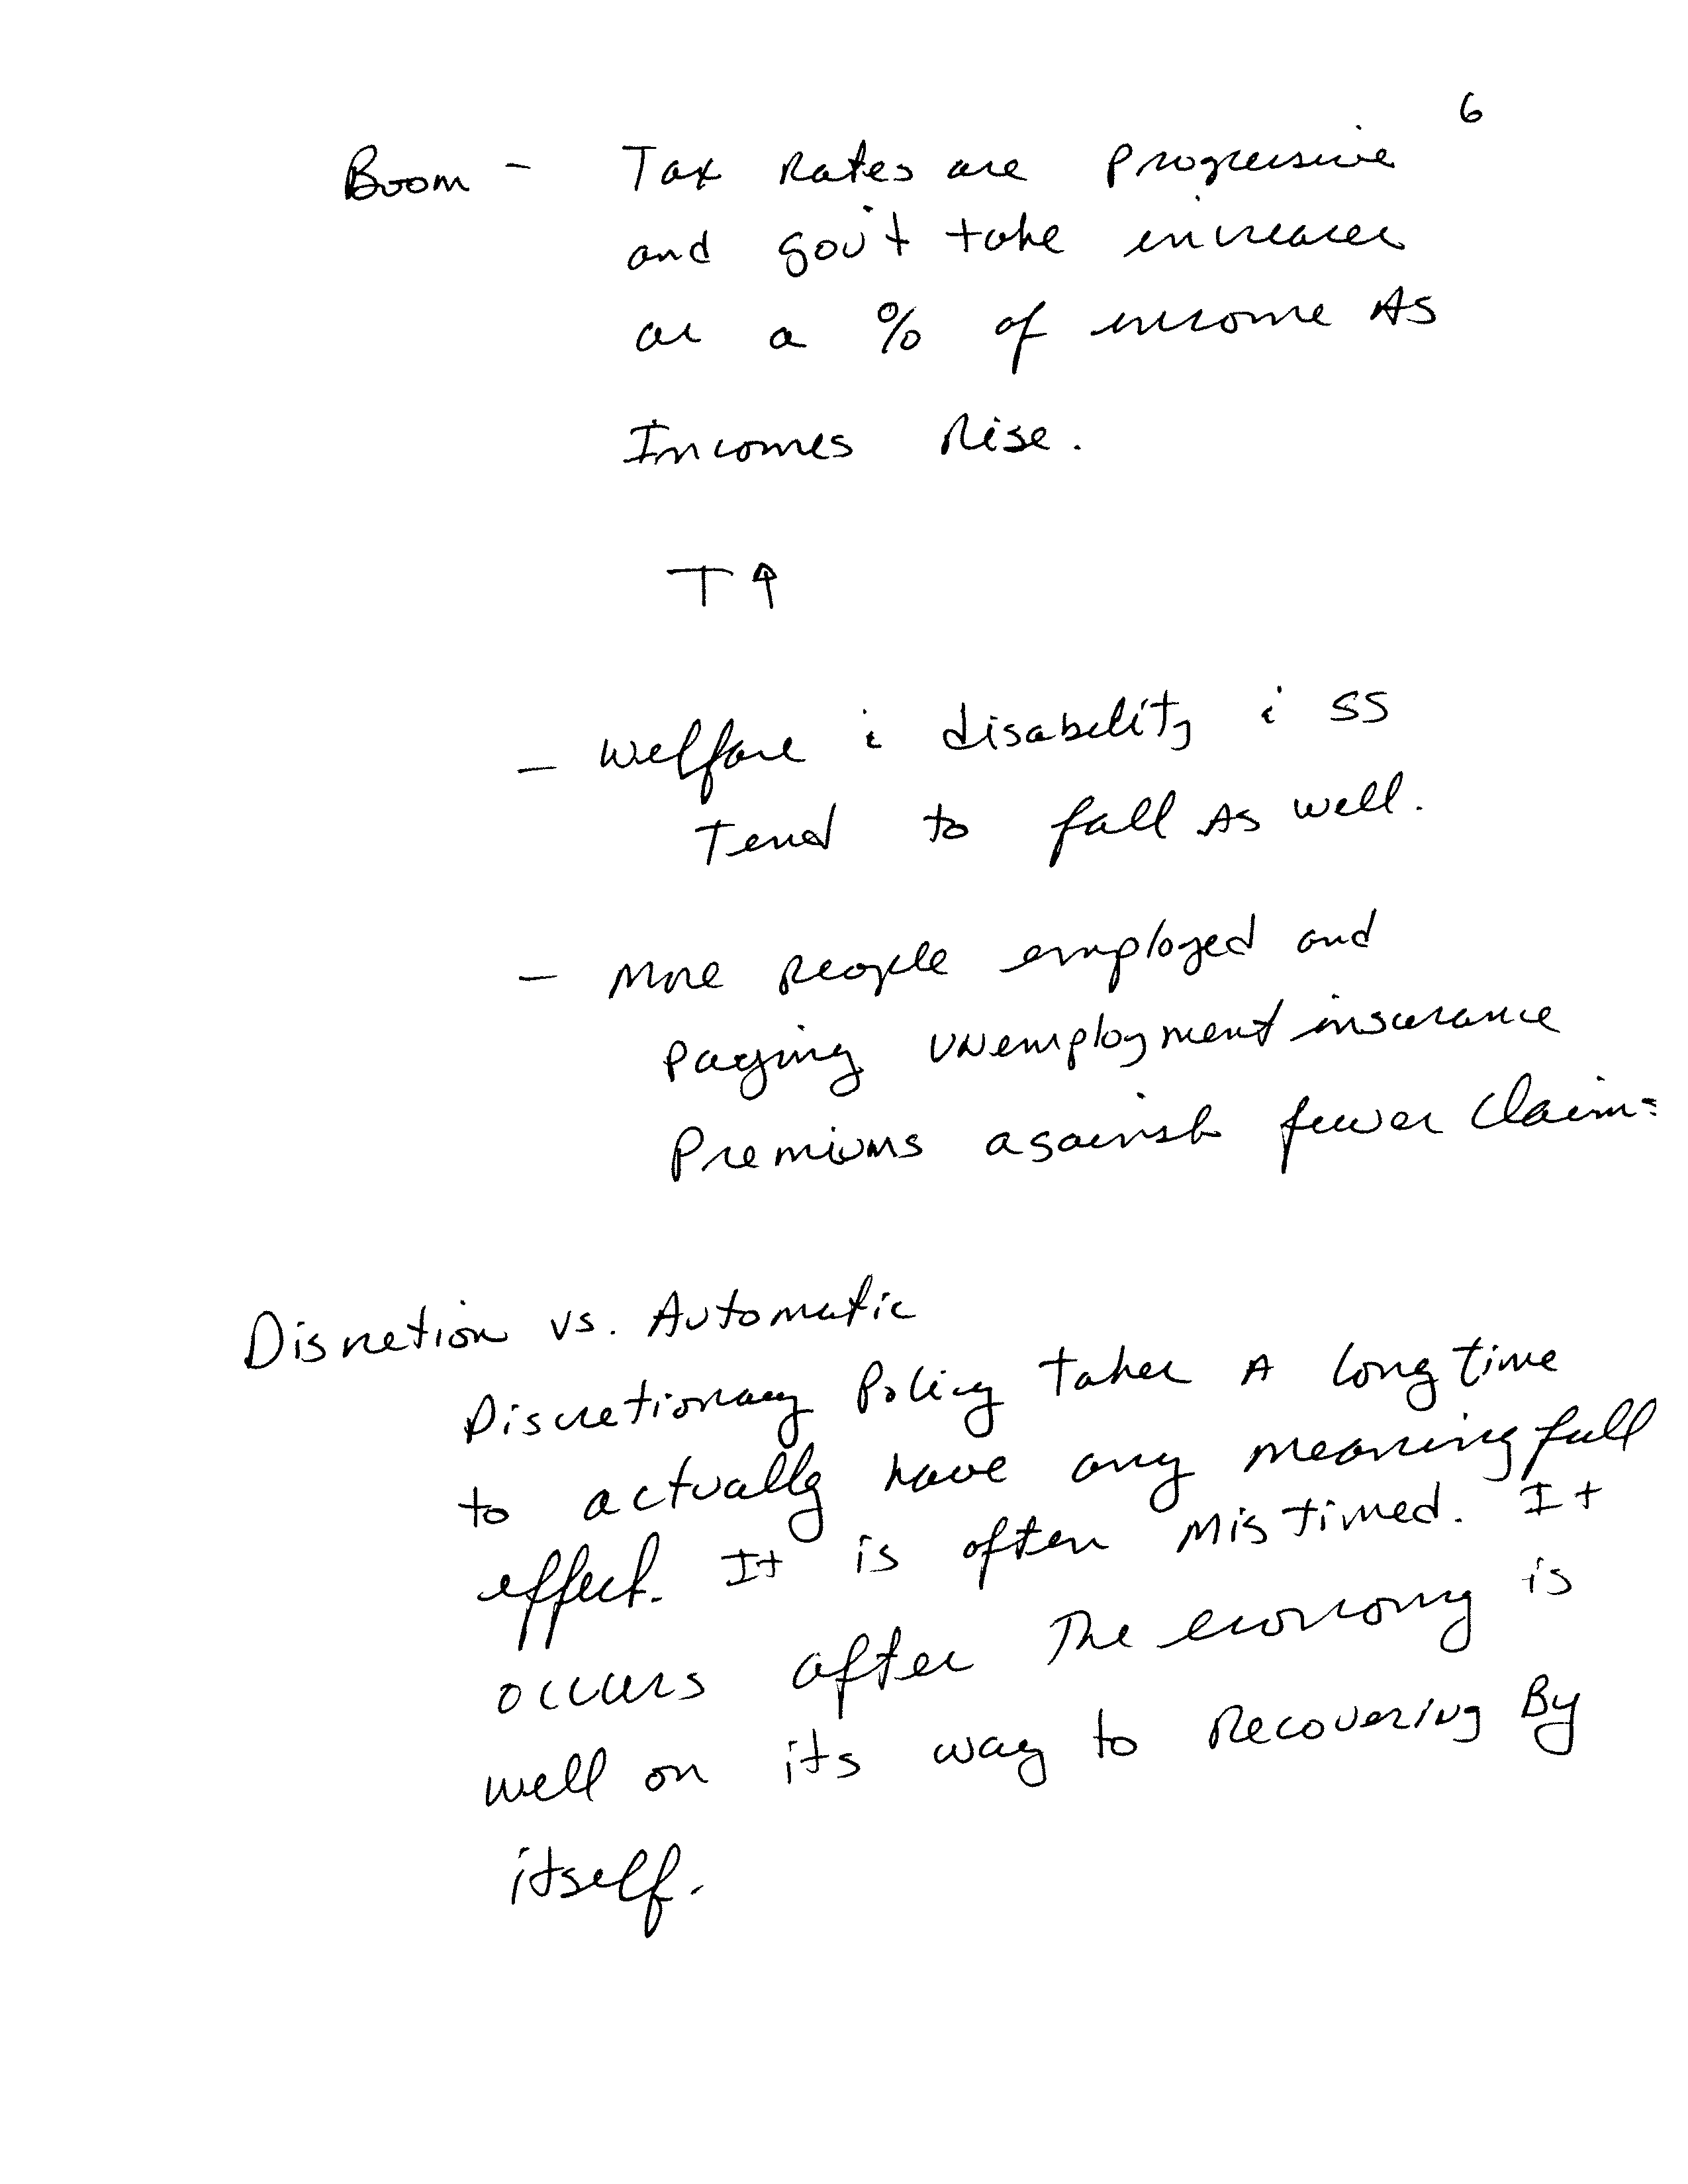 6
Boom - Tax Rates are Progressive
and gov't take increases
as a % of income As
Incomes Rise.
T↑
- Welfare & disability & SS
Tend to fall As well.
- More people employed and
Paying Unemployment insurance
Premiums against fewer Claims
Discretion vs. Automatic
Discretionary Policy takes A long time
to actually have any meaningfull
effect. It is often Mistimed. It
occurs after The economy is
well on its way to Recovering By
itself.